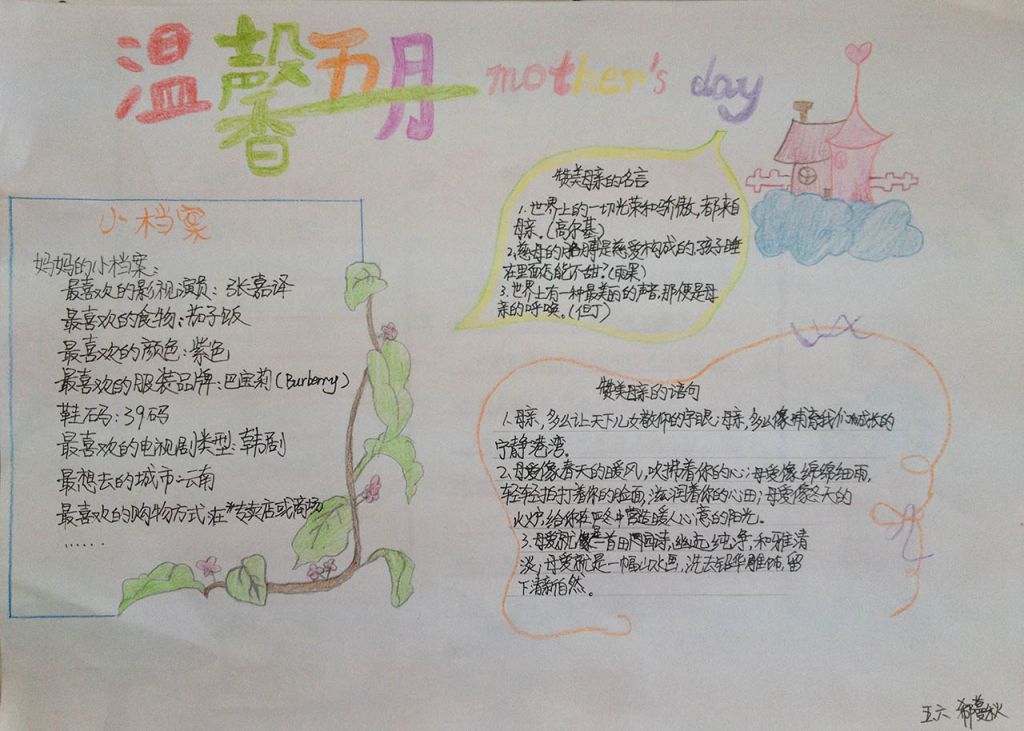 温馨五月 mother's day
小档案
妈妈的小档案:
最喜欢的影视演员:张嘉译
最喜欢的食物:茄子饭
最喜欢的颜色:紫色
最喜欢的服装品牌:巴宝莉(Burberry)
鞋码:39码
最喜欢的电视剧类型:韩剧
最想去的城市:云南
最喜欢的购物方式:在专卖店或商场
......
赞美母亲的名言
1.世界上的一切光荣和骄傲,都来自
母亲。(高尔基)
2.慈母的胳膊是慈爱构成的,孩子睡
在里面怎能不甜?(雨果)
3.世界上有一种最美丽的声音,那便是母
亲的呼唤。(但丁)
赞美母亲的语句
1.母亲,多么让天下儿女敬仰的字眼;母亲,多么像哺育我们成长的
宁静港湾。
2.母爱像春天的暖风,吹拂着你的心;母爱像绵绵细雨,
轻轻拍打着你的脸面,滋润着你的心田;母爱像冬天的
火炉,给你在严冬中营造暖人心意的阳光。
3.母爱就像是一首田园诗,幽远纯净,和雅清
淡;母爱就是一幅山水画,洗去铅华雕饰,留
下清新自然。
五六